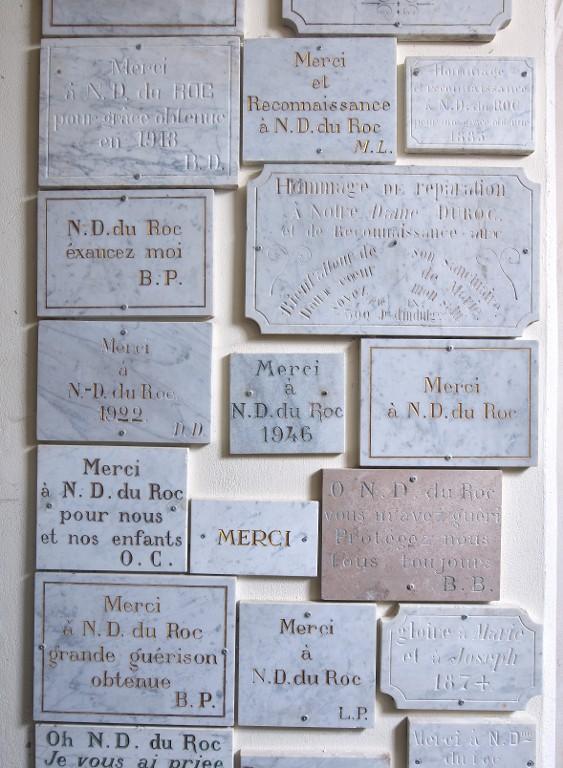 Merci
à N.D. du ROC
pour grâce obtenue
en 1918
B.D.
Merci
et
Reconnaissance
à N.D. du Roc
M.L.
Hommage
et reconnaissance
à N.D. du ROC
pour une grâce obtenue
1885
N.D. du Roc
éxaucez moi
B.P.
Hommage DE réparation
à Notre Dame DU ROC
et de Reconnaissance avec
Bienfait de
son sanctuaire
coeur
de Marie
soyez
mon salut
300 J. d'indulg.
Merci
à
N.-D. du Roc
1922
D.D.
Merci
à
N.D. du Roc
1946
Merci
à N.D. du Roc
Merci
à N.D. du Roc
pour nous
et nos enfants
O.C.
MERCI
O N.D. du Roc
vous m'avez guéri
Protégez nous
tous toujours
B.B.
Merci
à N.D. du Roc
grande guérison
obtenue
B.P.
Merci
à
N.D. du Roc
L.P.
gloire à Marie
et à Joseph
1874
Oh N.D. du Roc
Je vous ai priée
Merci à N.Dme
du Roc